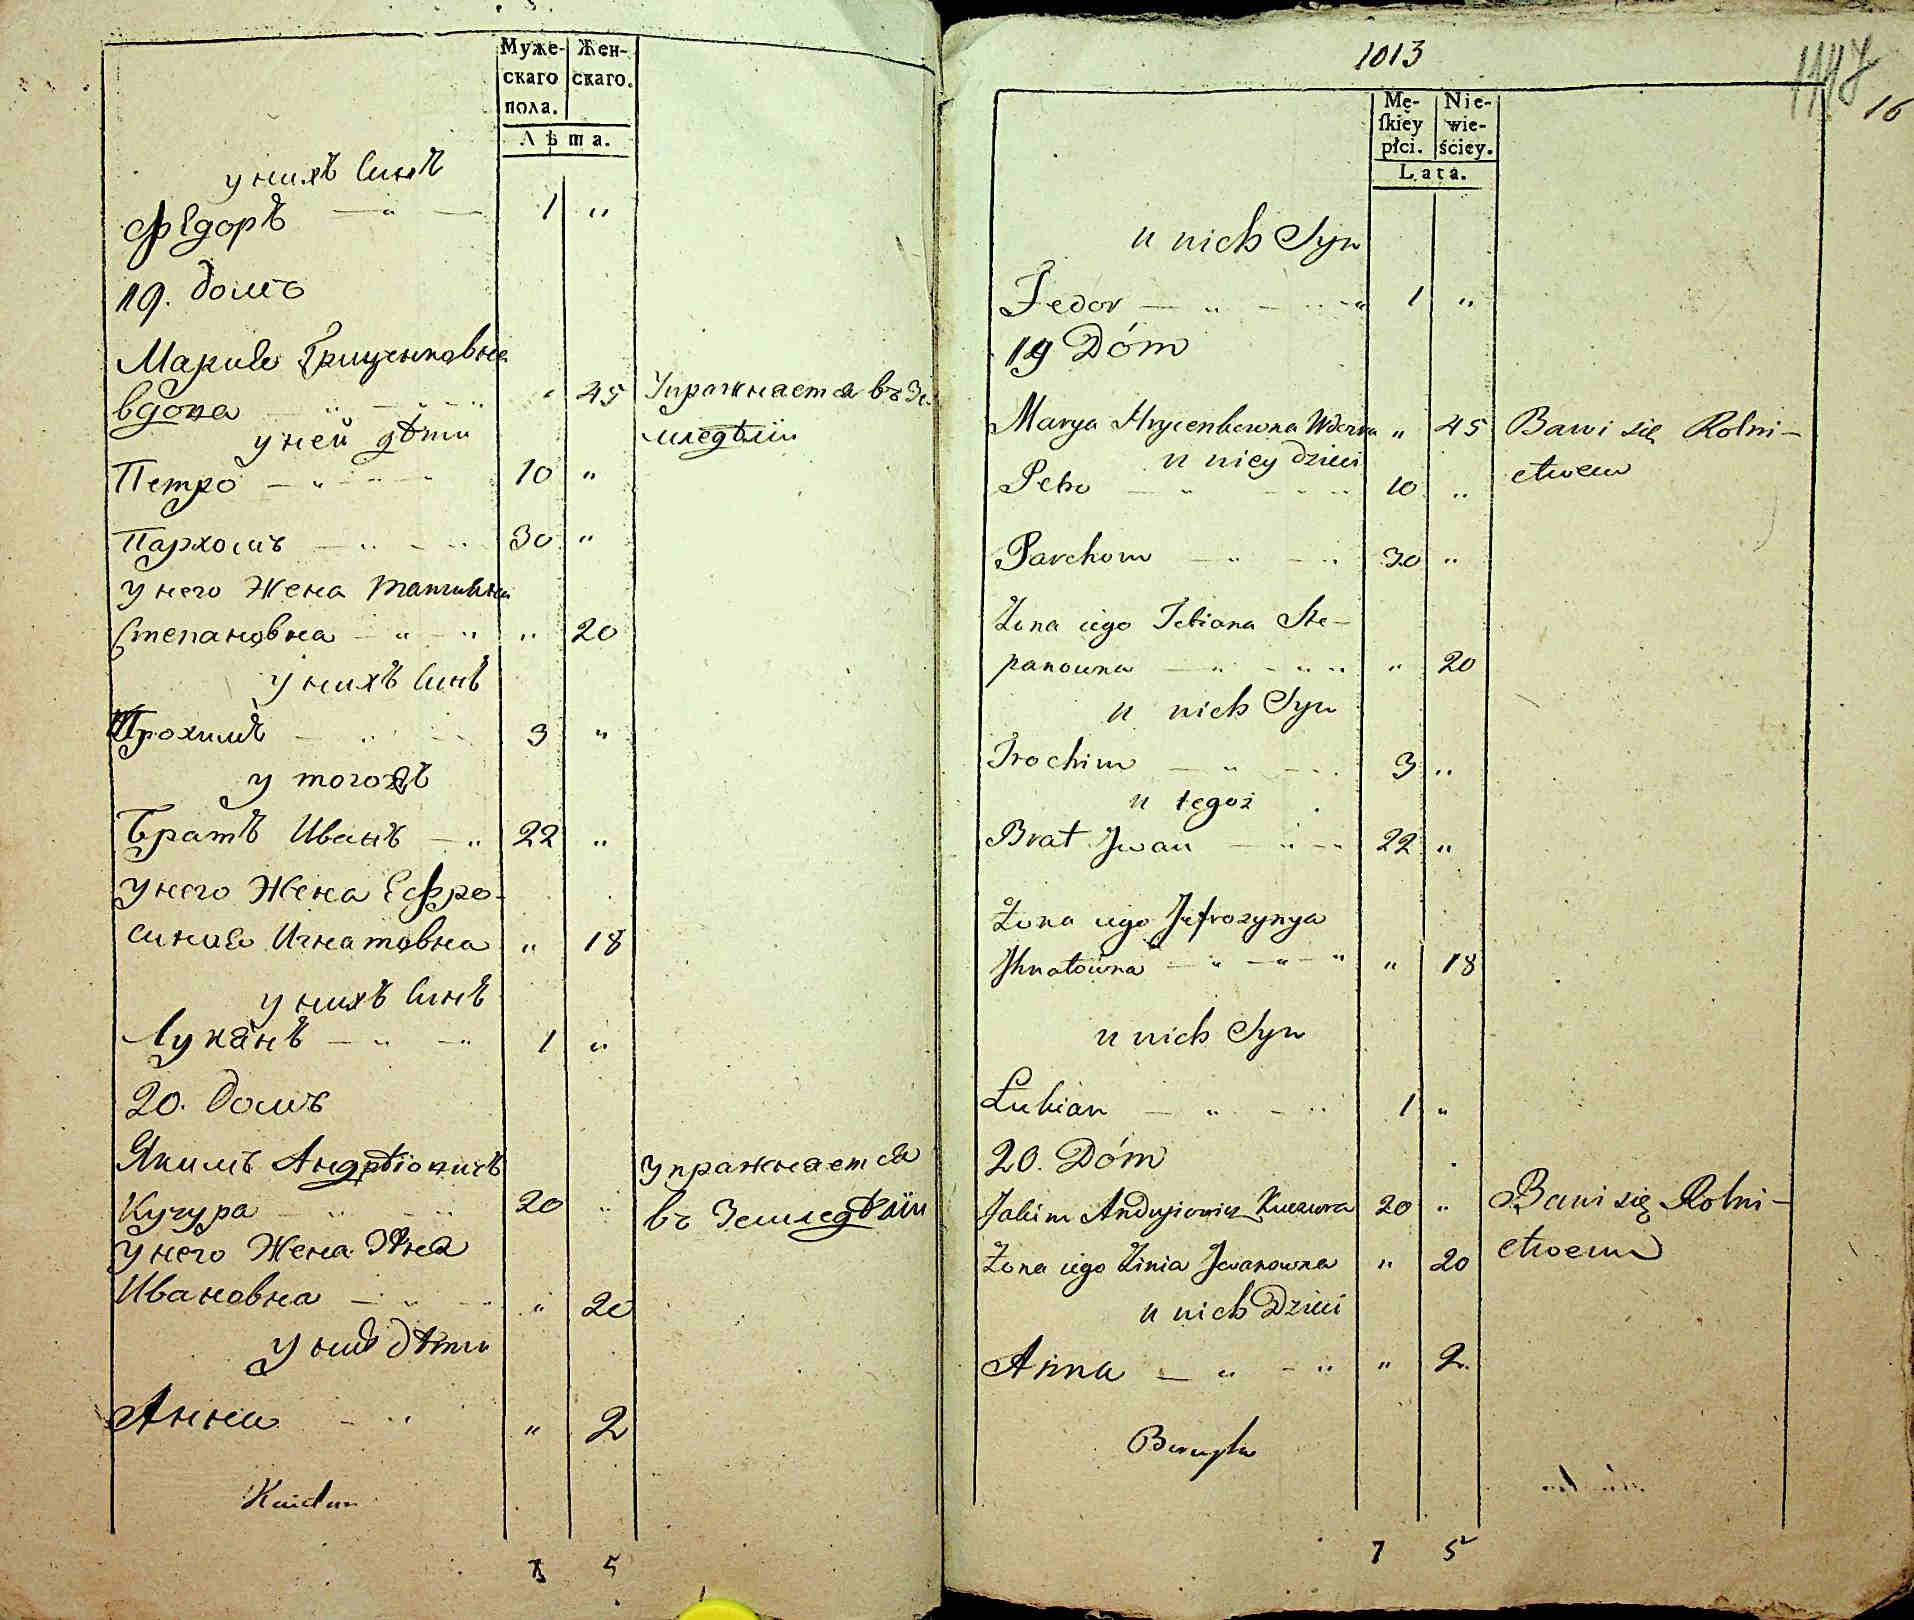 Муже-
скаго
пола.
Жен-
скаго.
Лѣта.
у нихъ Синъ
Федоръ — „ — 1 „
19. домъ
Мария Гриценковна
вдова — „ — „ 45 Упражнается въ Зе-
у ней дѣти мледѣлїи
Петро — „ — 10 „
Пархомъ — „ — „ 30 „
у него Жена Татиана
Степановна — „ — „ „ 20
у нихъ Синъ
Трохимъ — „ — 3 „
у тогожъ
Братъ Иванъ — „ 22 „
у него Жена Ефро-
синия Игнатовна „ 18
у нихъ Синъ
Лукѧнъ — „ — „ 1 „
20. домъ
Якимъ Андрѣіовичъ Упражнается
Кучура — „ — „ 20 „ въ Земледѣлїи
у него Жена
Ивановна — „ — „ „ 20
у них дѣти
Анна — „ „ 2
7 5
1013
16
Mę-
ſkiey
płci.
Nie-
wie-
ściey.
Lata.
u nich Syn
Fedor — „ — „ 1 „
19 Dóm
Marya Hrycenkowna Wdowa „ 45 Bawi się Rolni-
u niey dzieci ctwem
Petro — „ — „ 10 „
Parchom — „ — „ 30 „
Żona iego Tetiana Ste-
panowna — „ — „ „ 20
u nich Syn
Trochim — „ — 3 „
u tegoż
Brat Jwan — „ — 22 „
Żona iego Jefrozynya
Jhnatowna — „ — „ — „ „ 18
u nich Syn
Łukian — „ — „ 1 „
20. Dóm
Jakim Andryiowicz Kuczura 20 „ Bawi się Rolni-
Żona iego Zinia Jwanowna „ 20 ctwem
u nich Dzieci
Anna — „ — „ „ 2.
7 5